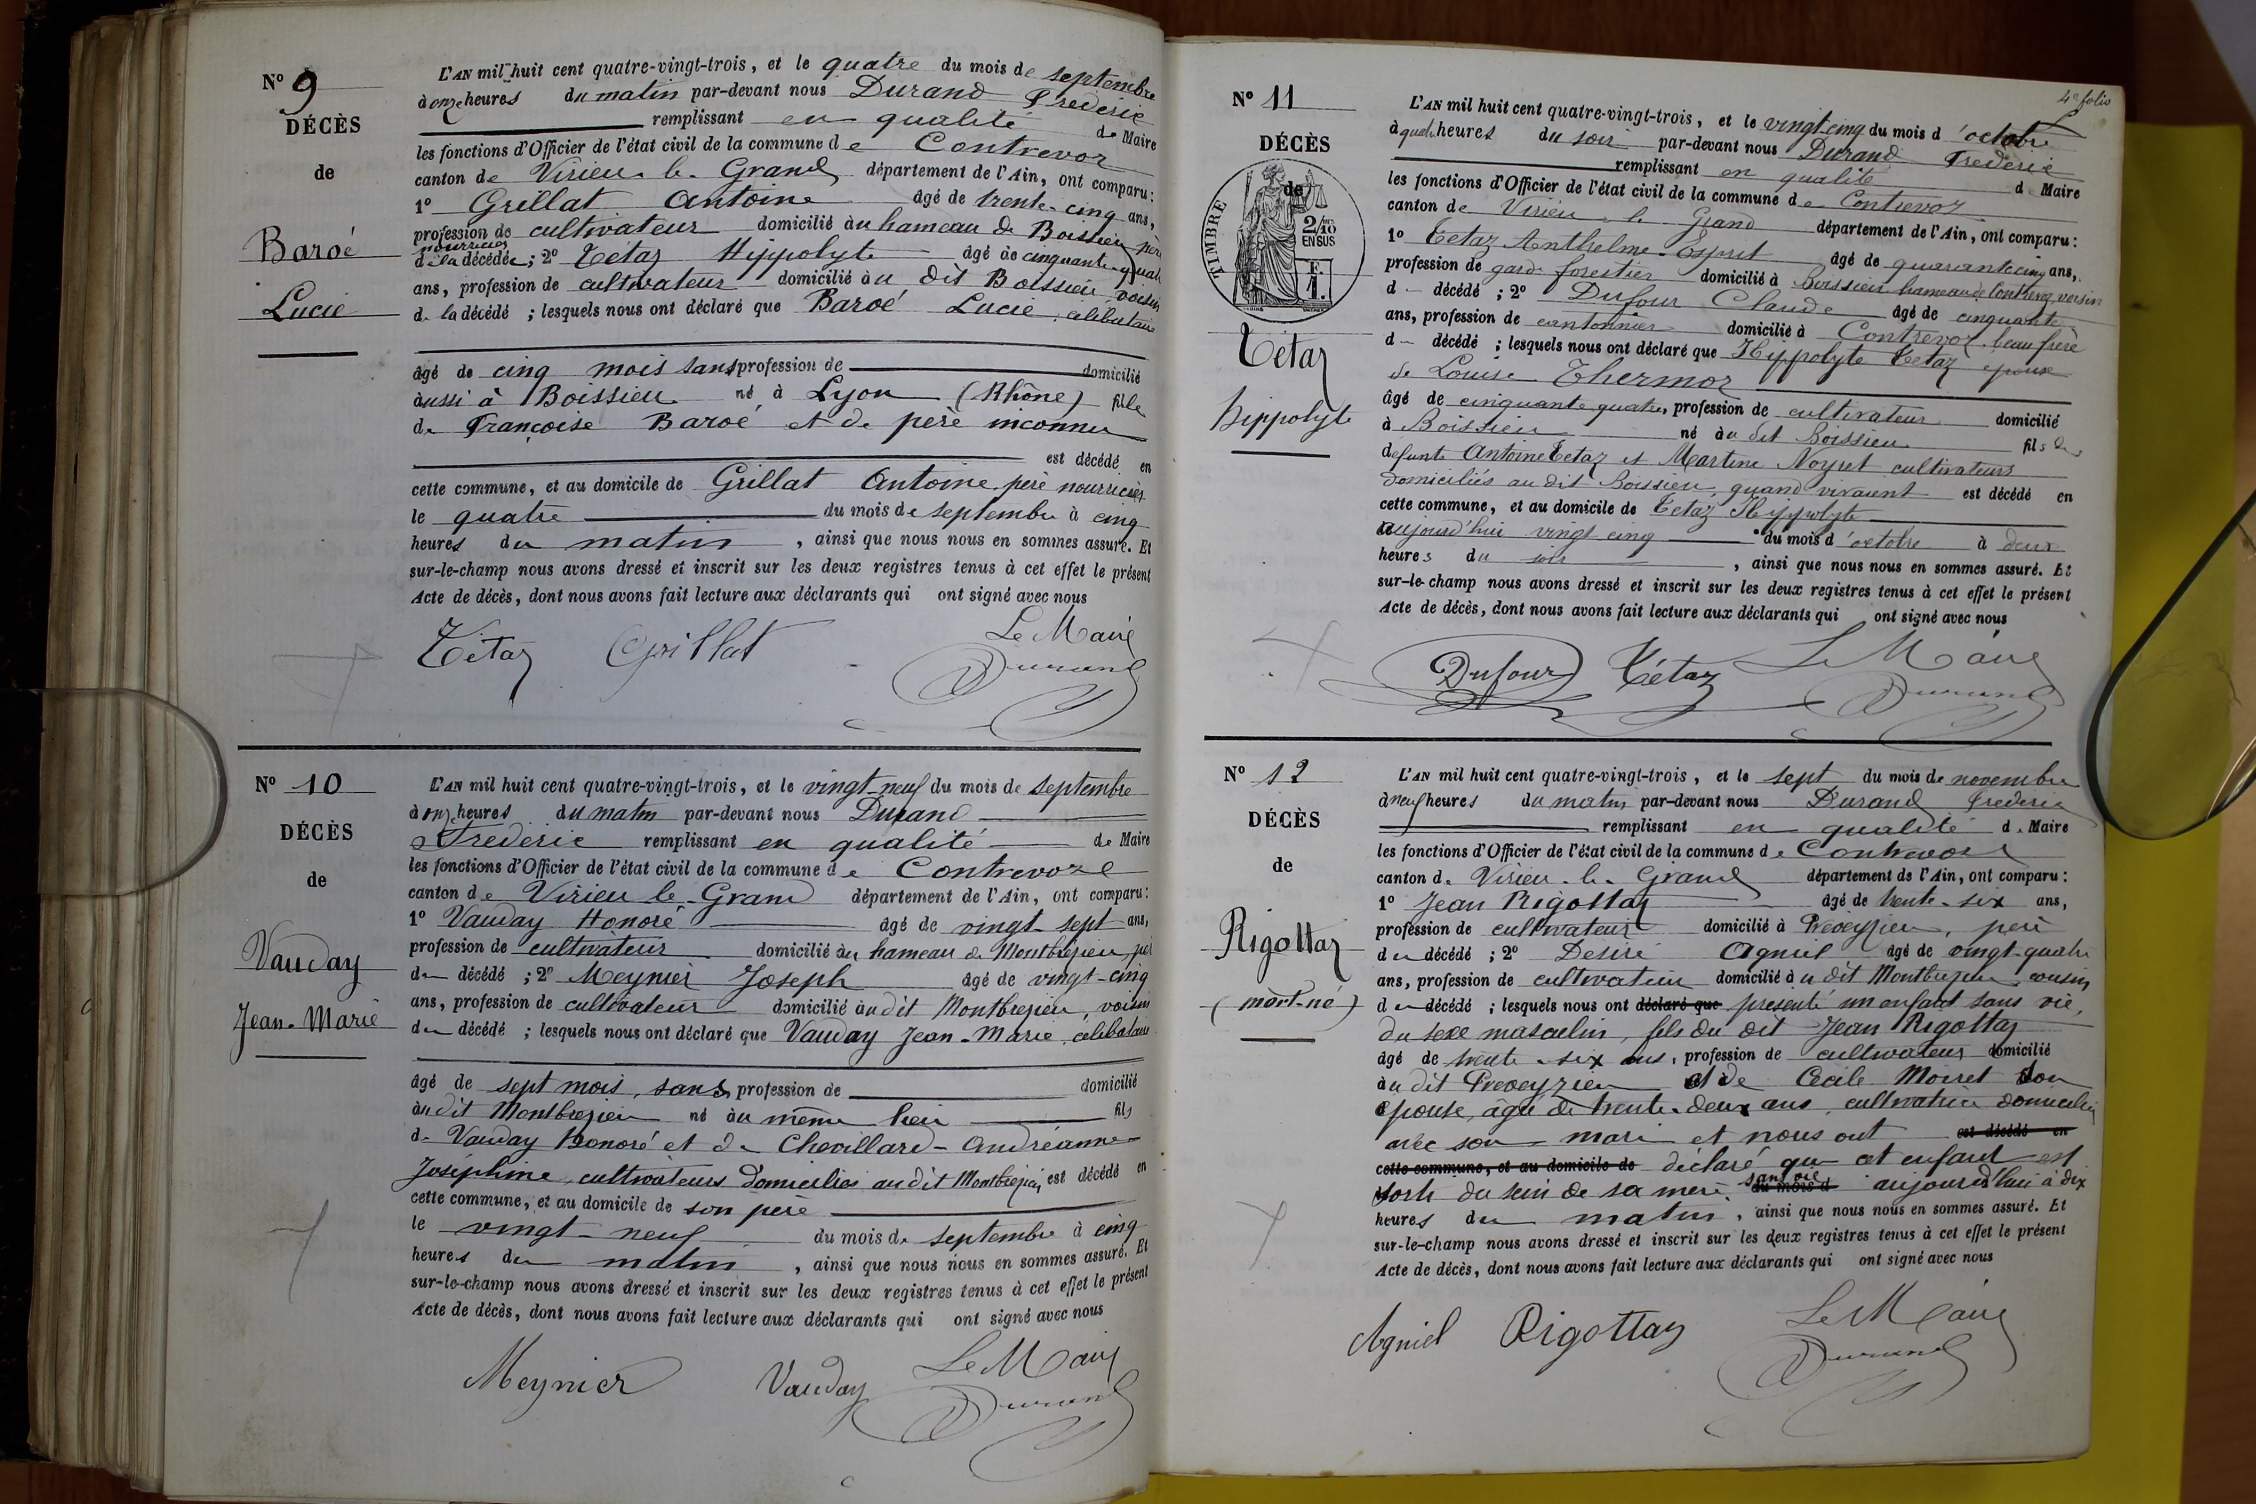 N° 9
DÉCÈS
de
Baroé
Lucie
L'AN mil huit cent quatre-vingt-trois, et le quatre du mois de septembre
à onze heures du matin par-devant nous Durand Frederic
remplissant en qualité de Maire
les fonctions d'Officier de l'état civil de la commune de Contrevoz
canton de Virieu le Grand département de l'Ain, ont comparu :
1° Grillat Antoine âgé de trente-cinq ans,
profession de cultivateur domicilié au hameau de Boissieu père
nourricier
de la décédée ; 2° Tétaz Hippolyte âgé de cinquante-quatre
ans, profession de cultivateur domicilié au dit Boissieu, voisin
de la décédé ; lesquels nous ont déclaré que Baroé Lucie, célibataire
âgé de cinq mois sans profession de domicilié
aussi à Boissieu né à Lyon (Rhône) fille
de Françoise Baroé et de père inconnu
est décédé en
cette commune, et au domicile de Grillat Antoine, père nourricier
le quatre du mois de septembre à cinq
heures du matin, ainsi que nous nous en sommes assuré. Et
sur-le-champ nous avons dressé et inscrit sur les deux registres tenus à cet effet le présent
Acte de décès, dont nous avons fait lecture aux déclarants qui ont signé avec nous
Tétaz Grillat Le Maire
Durand
N° 10
DÉCÈS
de
Vauday
Jean-Marie
L'AN mil huit cent quatre-vingt-trois, et le vingt-neuf du mois de septembre
à onze heures du matin par-devant nous Durand
Frederic remplissant en qualité de Maire
les fonctions d'Officier de l'état civil de la commune de Contrevoz
canton de Virieu le Grand département de l'Ain, ont comparu :
1° Vauday Honoré âgé de vingt-sept ans,
profession de cultivateur domicilié au hameau de Montbrezieu, père
du décédé ; 2° Meynier Joseph âgé de vingt-cinq
ans, profession de cultivateur domicilié au dit Montbrezieu, voisin
du décédé ; lesquels nous ont déclaré que Vauday Jean-Marie, célibataire
âgé de sept mois, sans profession de domicilié
au dit Montbrezieu né au même lieu fils
de Vauday Honoré et de Chevillard-Andréanne
Joséphine, cultivateurs domiciliés au dit Montbrezieu, est décédé en
cette commune, et au domicile de son père
le vingt-neuf du mois de septembre à cinq
heures du matin, ainsi que nous nous en sommes assuré. Et
sur-le-champ nous avons dressé et inscrit sur les deux registres tenus à cet effet le présent
Acte de décès, dont nous avons fait lecture aux déclarants qui ont signé avec nous
Meynier Vauday Le Maire
Durand
4e folio
N° 11
DÉCÈS
de
TIMBRE
2/10
EN SUS
Tetaz
hippolyte
L'AN mil huit cent quatre-vingt-trois, et le vingt-cinq du mois d'octobre
à quatre heures du soir par-devant nous Durand Frederic
remplissant en qualité d Maire
les fonctions d'Officier de l'état civil de la commune de Contrevoz
canton de Virieu le Grand département de l'Ain, ont comparu :
1° Tetaz Anthelme-Esprit âgé de quarante cinq ans,
profession de garde forestier domicilié à Boissieu hameau de Contrevoz, voisin
d décédé ; 2° Dufour Claude âgé de cinquante
ans, profession de cantonnier domicilié à Contrevoz, beau frère
d décédé ; lesquels nous ont déclaré que Hippolyte Tetaz époux
de Louise Thermoz
âgé de cinquante quatre, profession de cultivateur domicilié
à Boissieu né au dit Boissieu fils de
défunts Antoine Tetaz et Martine Noyret cultivateurs
domiciliés au dit Boissieu, quand vivaient est décédé en
cette commune, et au domicile de Tetaz Hippolyte
aujourd'hui vingt cinq du mois d'octobre à deux
heures du soir, ainsi que nous nous en sommes assuré. Et
sur-le-champ nous avons dressé et inscrit sur les deux registres tenus à cet effet le présent
Acte de décès, dont nous avons fait lecture aux déclarants qui ont signé avec nous
Dufour Tétaz Le Maire
Durand
N° 12
DÉCÈS
de
Rigottaz
(mort-né)
L'AN mil huit cent quatre-vingt-trois, et le sept du mois de novembre
à neuf heures du matin par-devant nous Durand Frederic
remplissant en qualité de Maire
les fonctions d'Officier de l'état civil de la commune de Contrevoz
canton de Virieu-le-Grand département de l'Ain, ont comparu :
1° Jean Rigottaz âgé de trente-six ans,
profession de cultivateur domicilié à Preveyzieu, père
du décédé ; 2° Désiré Agniel âgé de vingt-quatre
ans, profession de cultivateur domicilié au dit Montbrezieu, cousin
du décédé ; lesquels nous ont déclaré que présenté un enfant sans vie,
du sexe masculin, fils du dit Jean Rigottaz
âgé de trente-six ans, profession de cultivateur domicilié
au dit Preveyzieu et de Cécile Moiret son
épouse, âgée de trente-deux ans, cultivatrice domiciliée
avec son mari et nous ont est décédé en
cette commune, et au domicile de déclaré que cet enfant est
sorti du sein de sa mère, sans vie du mois d aujourd'hui à dix
heures du matin, ainsi que nous nous en sommes assuré. Et
sur-le-champ nous avons dressé et inscrit sur les deux registres tenus à cet effet le présent
Acte de décès, dont nous avons fait lecture aux déclarants qui ont signé avec nous
Agniel Rigottaz Le Maire
Durand